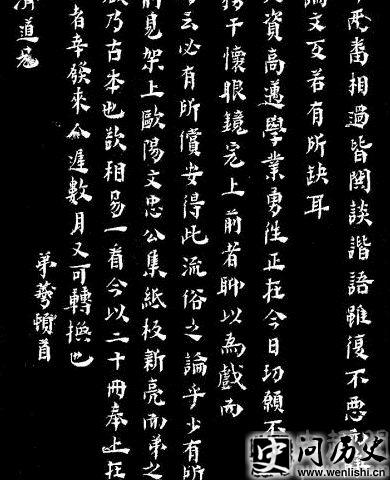 兩番相過皆閒談諧語雖復不惡
論文又若有所缺耳
資高邁學業勇往正在今日切願不
務于懷眼鏡完上前者聊以為戲而
云必有所償安得此流俗之論乎少有所
前見架上歐陽文忠公集紙板新亮而弟之
乃古本也欲相易一看今以二十冊奉上在
者幸發來令遲數月又可轉換也
弟萼頓首
濟道兄
史 问历史
www.wenlishi.cn